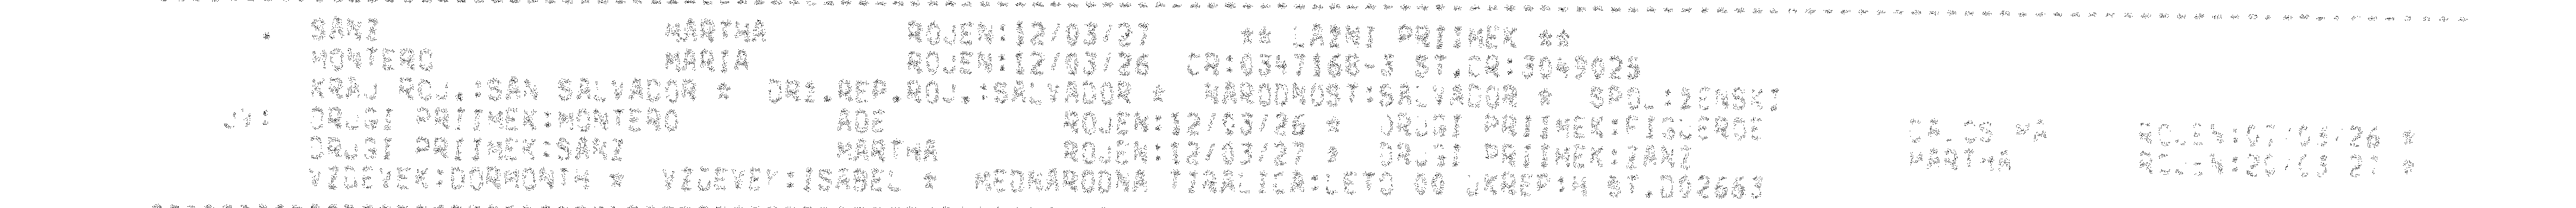 * SANZ MARTHA ROJEN:12/03/27 ** LAZNI PRIIMEK **
MONTERO MARIA ROJEN:12/03/26 CR:0347168-3 ST.CR:3049026
KRAJ ROJ.:SAN SALVADOR * DRZ.REP.ROJ.:SALVADOR * NARODNOST:SALVADOR * SPOL:ZENSKI
DRUGI PRIIMEK:MONTERO ADE ROJEN:12/03/26 * DRUGI PRIIMEK:FIGUEROE ROJEN:07/03/26 *
DRUGI PRIIMEK:SANZ MARTHA ROJEN:12/03/27 * DRUGI PRIIMEK:ZANZ MARTHA ROJEN:20/03/27 *
VZDEVEK:DORMONTH * VZDEVEK:ISABEL * MEDNARODNA TIRALICA:LETO 00 UKREP:H ST.D02663